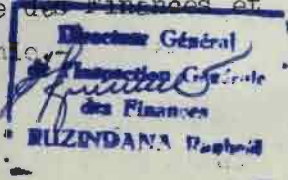 des Finances et
Directeur Général
de l'Inspection Générale
des Finances
RUZINDANA Raphaël